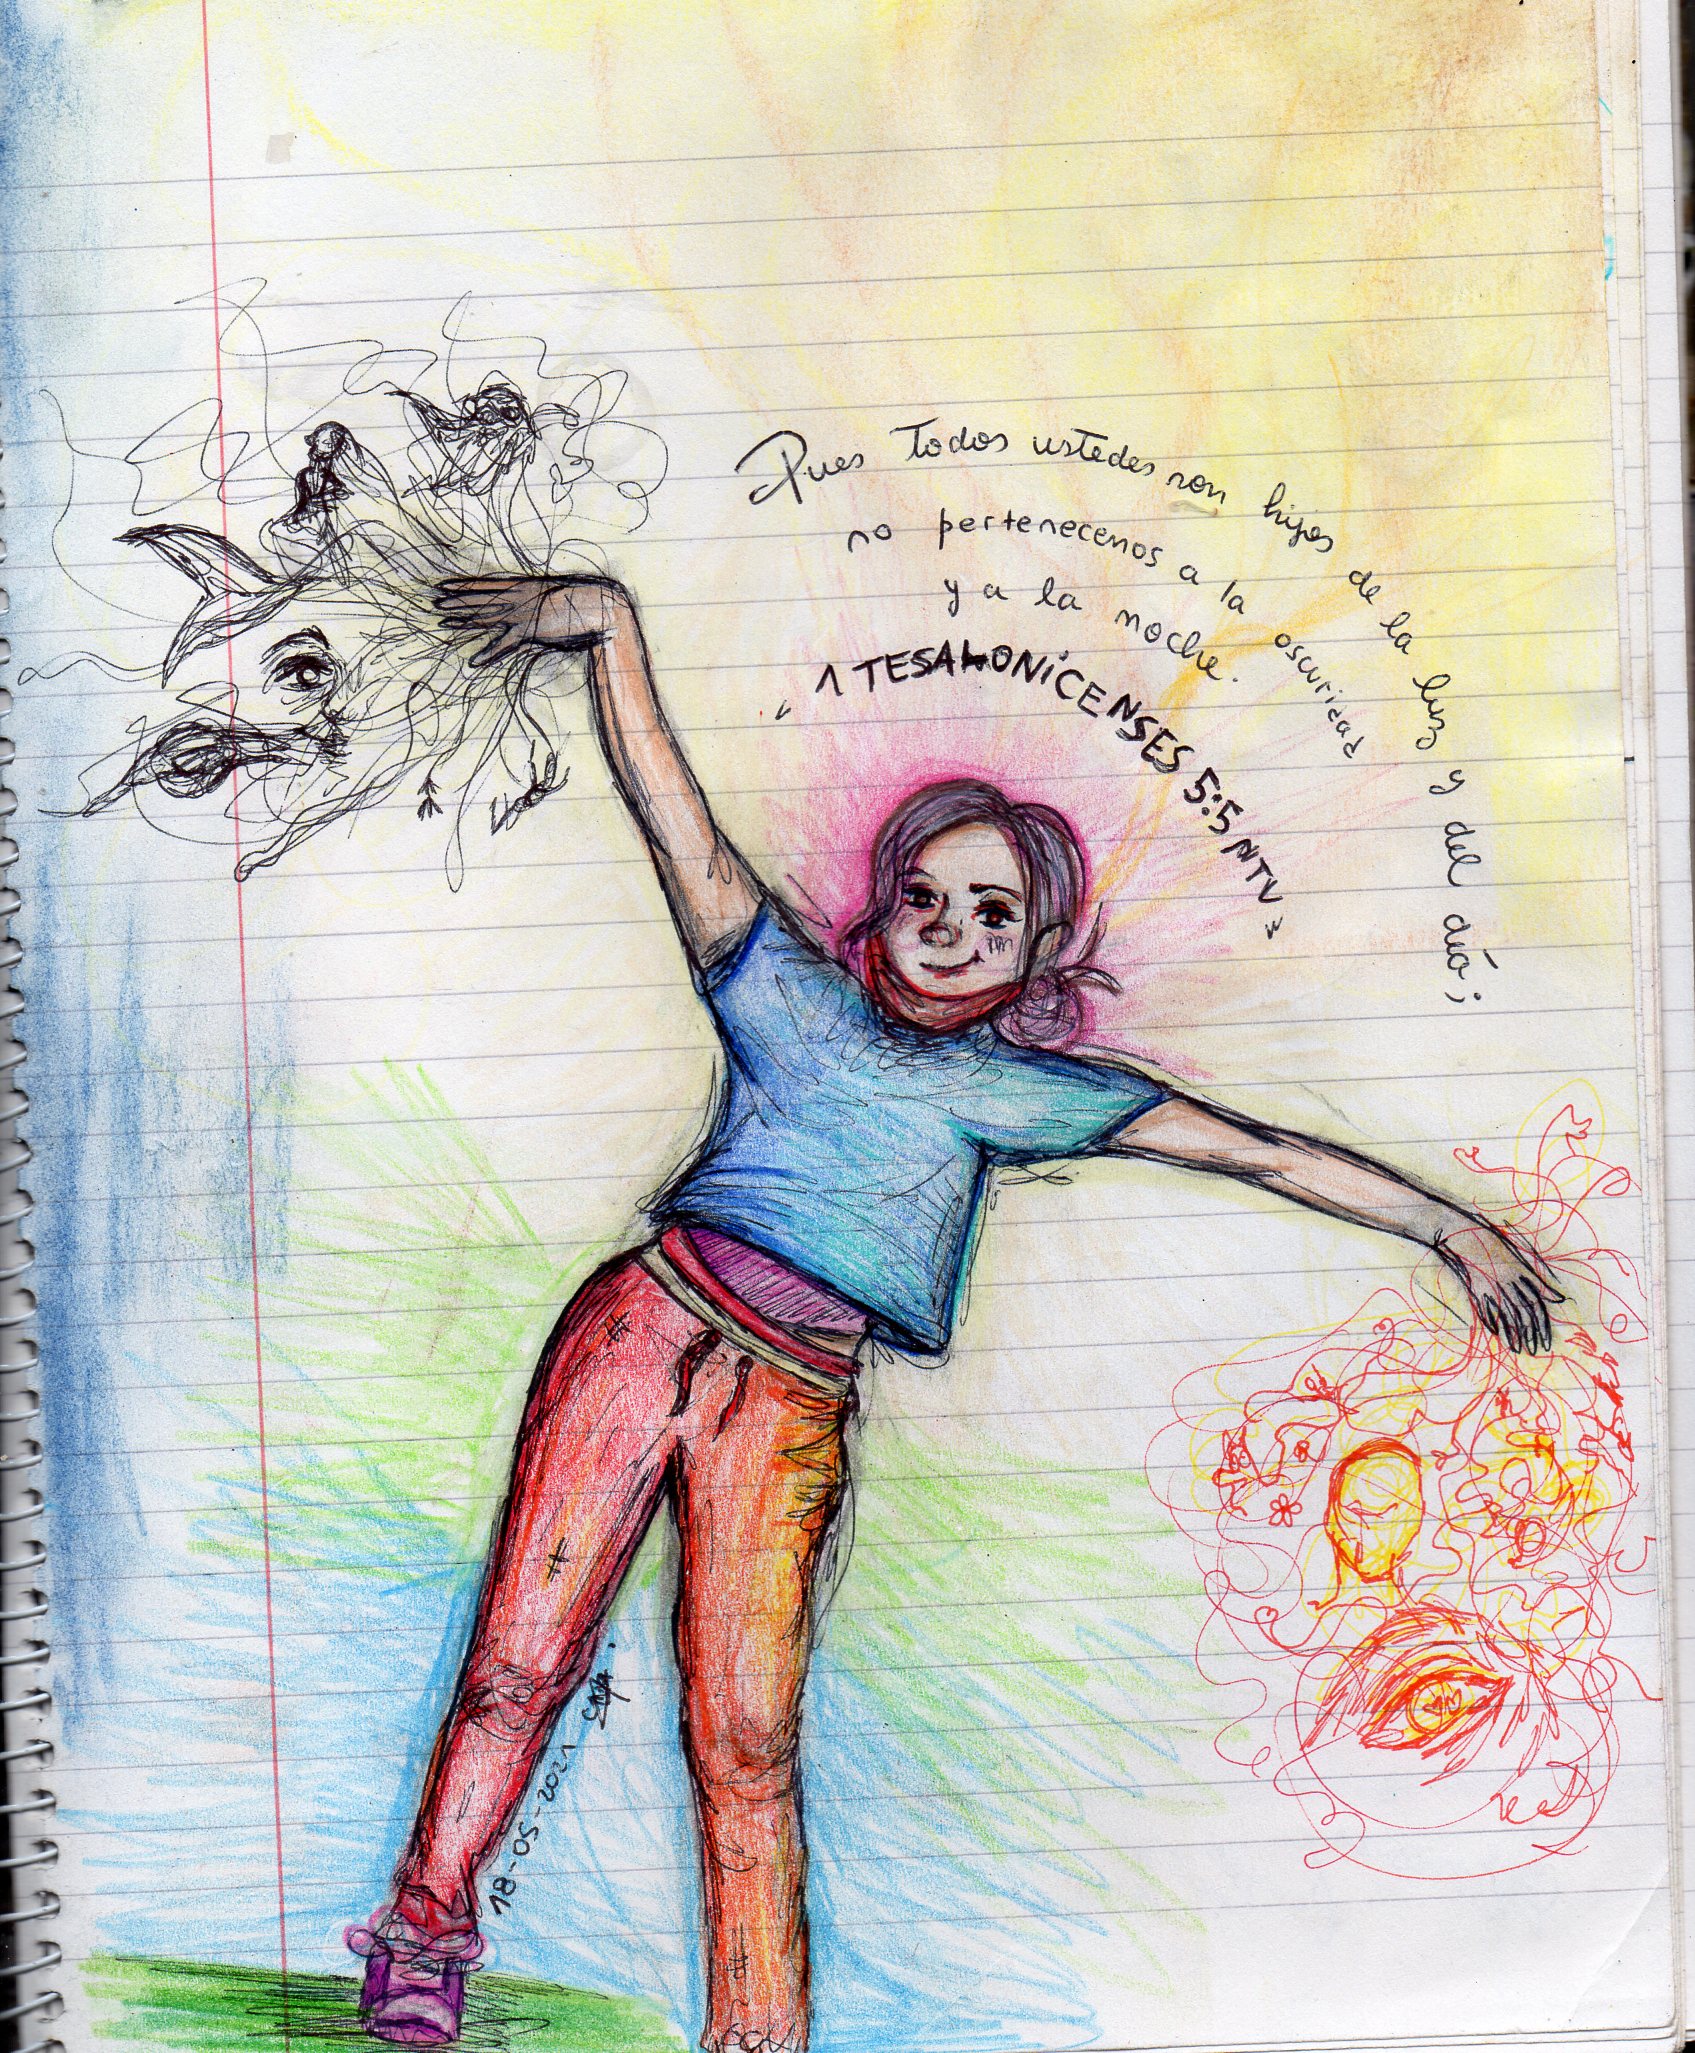 Pues Todos ustedes son hijos de la luz y del día;
no pertenecemos a la oscuridad
y a la noche.
"1 TESALONICENSES 5:5 NTV"
18-05-2021